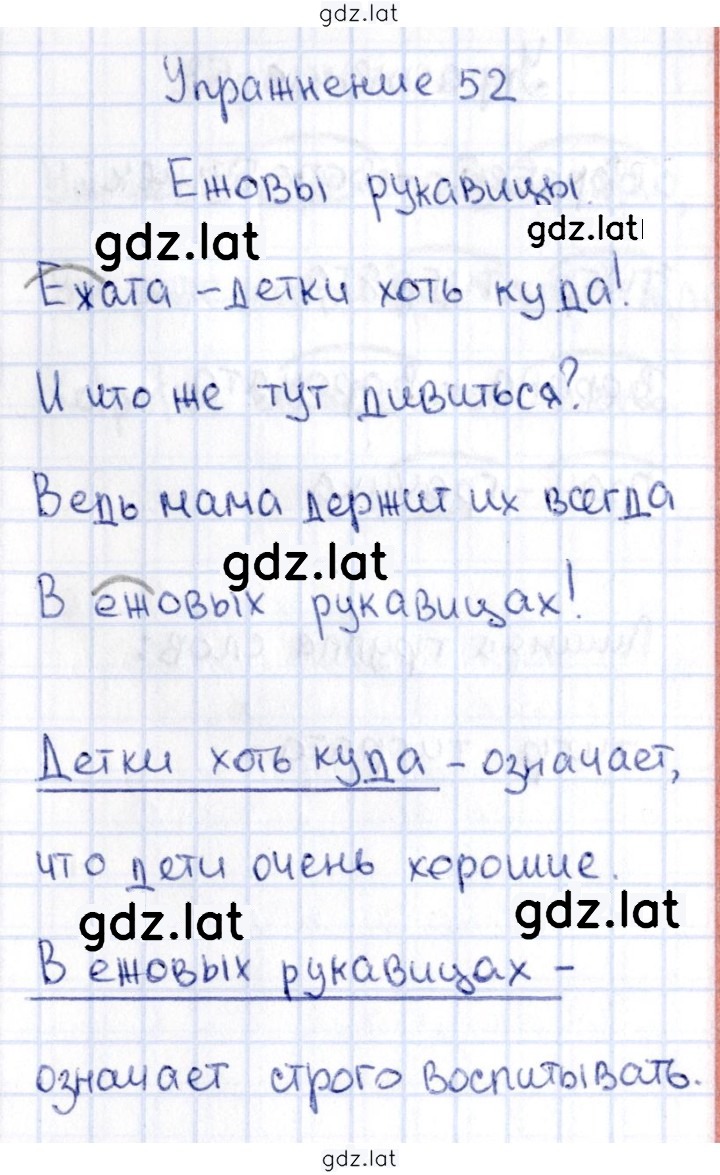 gdz.lat
Упражнение 52
Ежовы рукавицы.
gdz.lat
gdz.lat
Ежата – детки хоть куда!
И что же тут дивиться?
Ведь мама держит их всегда
gdz.lat
В ежовых рукавицах!
Детки хоть куда – означает,
что дети очень хорошие.
gdz.lat
gdz.lat
В ежовых рукавицах –
означает строго воспитывать.
gdz.lat